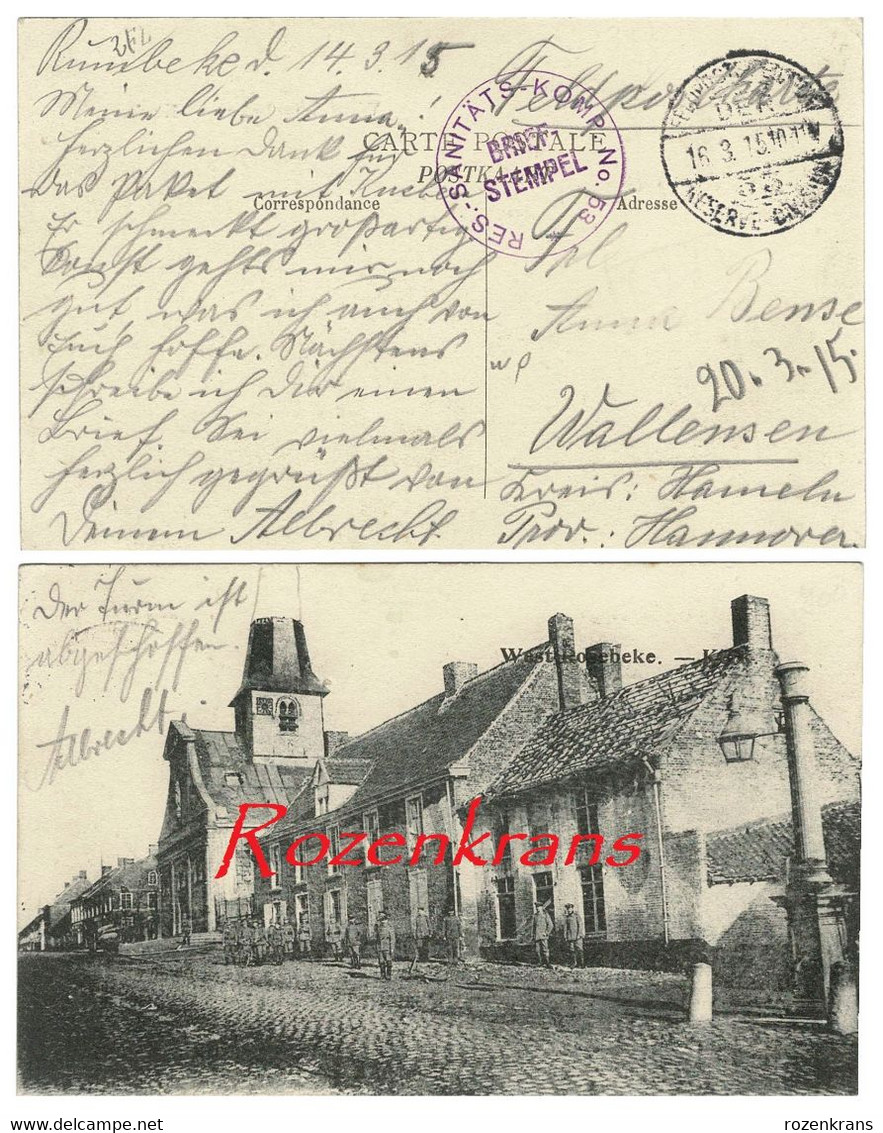 Rumbeke d. 14.3.15
Meine liebe Anna!
Herzlichen Dank für
das Paket mit Kuchen
Er schmeckt großartig
Sonst gehts mir noch
gut, was ich auch von
Euch hoffe. Nächstens
schreibe ich Dir einen
Brief. Sei vielmals
herzlich gegrüßt von
Deinem Albrecht.
Feldpostkarte
CARTE POSTALE
POSTKAART
Correspondance
Adresse
RES.-SANITÄTS-KOMP. No. 53.
BRIEF-
STEMPEL
FELDPOST
DER
16.3.15.10-11V
53
RESERVE-DIVISION
Frl.
Anna Bense
20.3.15.
Wallensen
Kreis: Hameln
Prov.: Hannover.
Der Turm ist
abgeschossen.
Albrecht.
West-Rosebeke. —
Rozenkrans
rozenkrans
rozenkrans